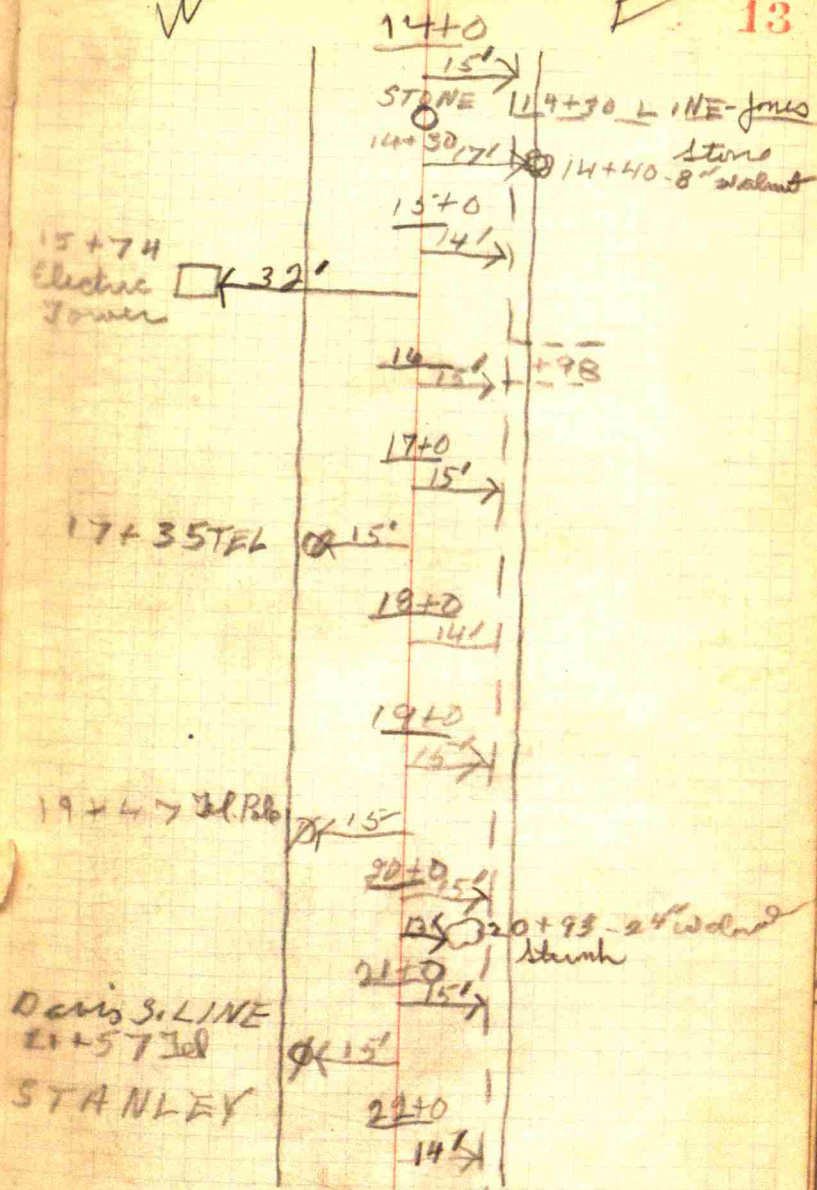 13
14+0
15'
STONE
14+30 LINE-Jones
Stone
14+30
17'
14+40-8" Walnut
15+0
14'
15+74
Electric
Tower
32'
+98
16
15'
17+0
15'
17+35 TEL
15'
18+0
14'
19+0
15'
19+47 Tel. Pole
15
20+0
15'
20+93-24" Walnut
21+0
15'
Davis S. LINE
21+57 Tel
15'
STANLEY
22+0
14'